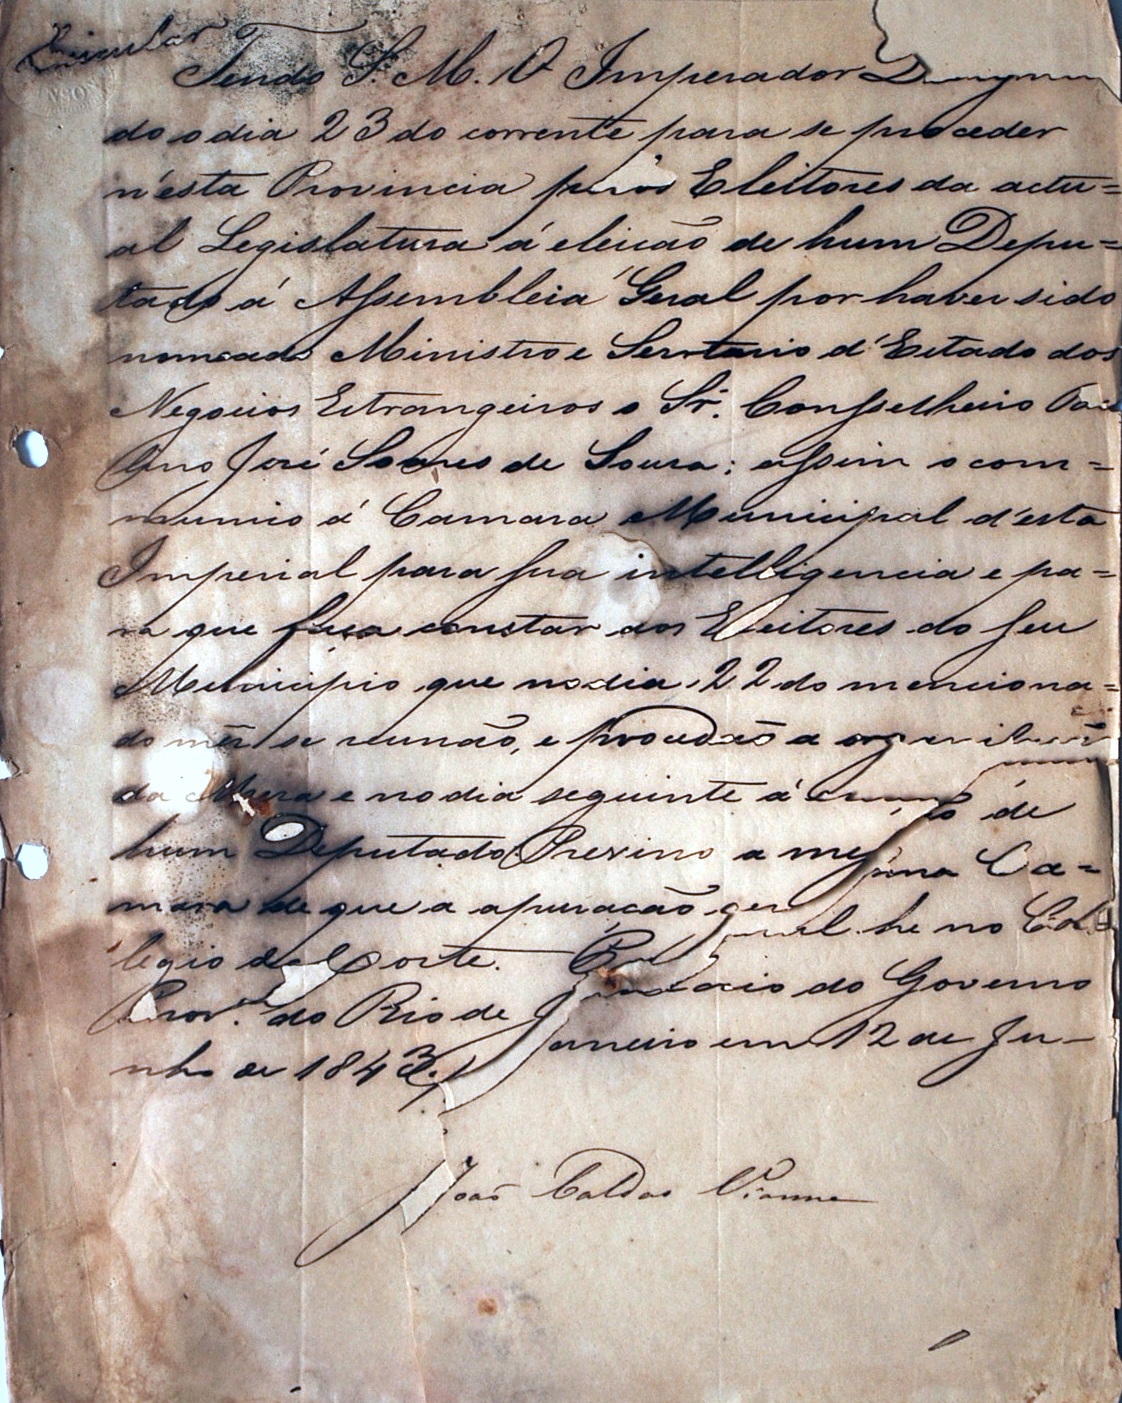 Circular
Tendo S. M. O Imperador Designa
do o dia 23 do corrente para se proceder
n'esta Provincia pelos Eleitores da actu=
al Legislatura á eleicão de hum Depu=
tado á Assembleia Geral por haver sido
nomeado Ministro e Secretario d'Estado dos
Negocios Estrangeiros o Sr. Conselheiro Pau
lino José Soares de Sousa; assim o com=
munico á Camara Municipal d'esta
Imperial para sua intelligencia e pa=
ra que faça constar aos Eleitores do seu
Municipio que no dia 22 do menciona=
do mês se reunão, e procedão a
da Mesa e no dia seguinte á de
hum Deputado Previno a mesma Ca=
mara de que a apuracão geral he no Col
legio da Corte. Palacio do Governo
Prov.al do Rio de Janeiro em 12 de Ju-
nho de 1843.
João Caldas Vianna